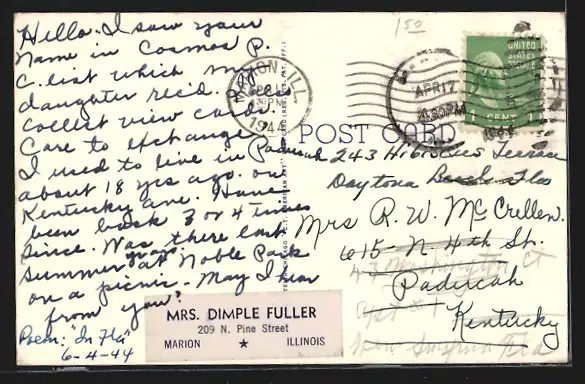 Hello. I saw your
name in Cosmos P.
C. list which my
daughter rec'd. I too
collect view cards.
Care to exchange?
I used to live in Paducah
about 18 yrs ago. on
Kentucky ave. Have
been back 3 or 4 times
since. Was there last
summer at Noble Park
on a picnic - May I hear
from you?
Poem: "In Fla"
6-4-44
MRS. DIMPLE FULLER
209 N. Pine Street
MARION ★ ILLINOIS
MARION, ILL.
1944
POST CARD
150
APR 17
4 30 PM
UNITED
STATES
1 CENT 1
243 Hibiscus Terrace
Daytona Beach Fla
Mrs R. W. McCrellen.
615 N. 4th St.
47 Washington Ct
Paducah
apt #1
Kentucky
New Smyrna Fla